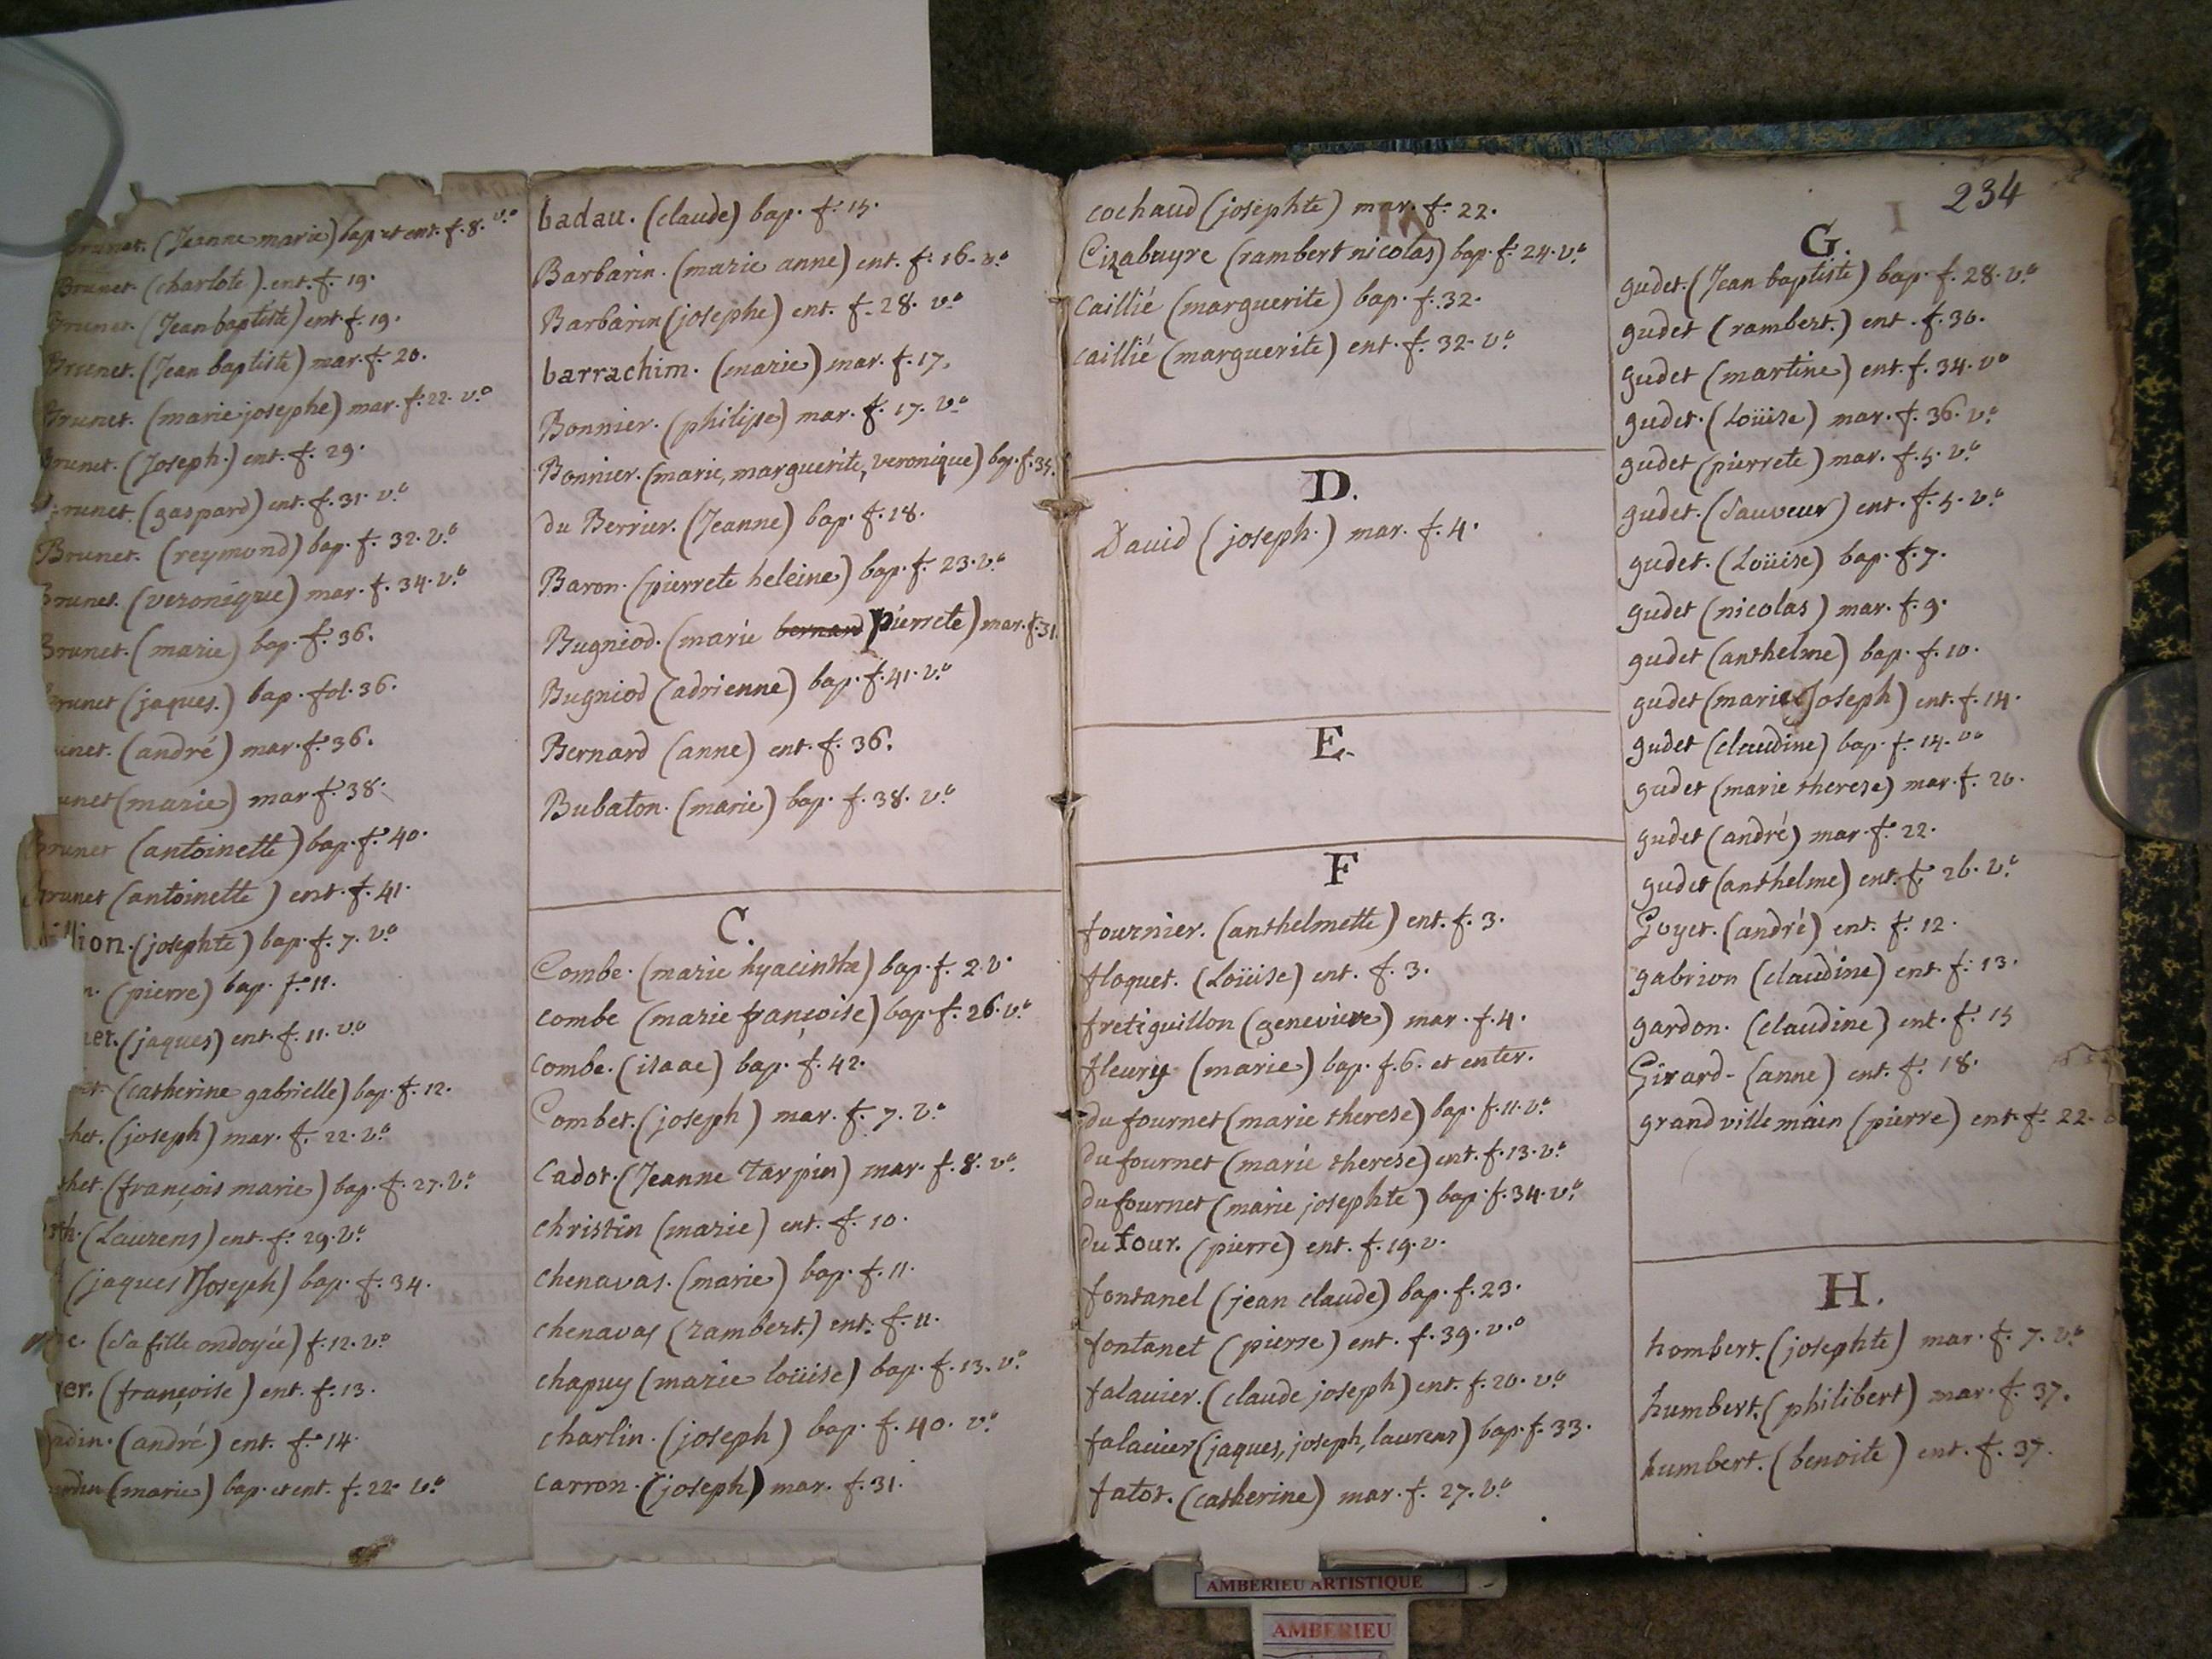 Brunet. (Jeanne marie) bap et ent. f. 8. v.o
Brunet. (charlote). ent. f. 19.
Brunet. (Jean baptiste) ent. f. 19.
Brunet. (Jean baptiste) mar. f. 20.
Brunet. (marie josephe) mar. f. 22. v.o
Brunet. (Joseph.) ent. f. 29.
Brunet. (gaspard) ent. f. 31. v.o
Brunet. (reymond) bap. f. 32. v.o
Brunet. (veronique) mar. f. 34. v.o
Brunet. (marie) bap. f. 36.
Brunet (jaques.) bap. fol. 36.
unet. (andré) mar. f. 36.
unet (marie) mar f. 38.
Brunet (antoinette) bap. f. 40.
Brunet (antoinette) ent. f. 41.
llion. (josephte) bap. f. 7. v.o
(pierre) bap. f. 11.
er. (jaques) ent. f. 11. v.o
(catherine gabrielle) bap. f. 12.
het. (joseph) mar. f. 22. v.o
het. (françois marie) bap. f. 27. v.o
(Laurens) ent. f. 29. v.o
(jaques Joseph) bap. f. 34.
e. (sa fille ondoyée) f. 12. v.o
er. (françoise) ent. f. 13.
din. (andré) ent. f. 14.
(marie) bap. et ent. f. 22. v.o
badau. (claude) bap. f. 15.
Barbarin. (marie anne) ent. f. 16. v.o
Barbarin (josephe) ent. f. 28. v.o
barrachim. (marie) mar. f. 17.
Bonnier. (philipe) mar. f. 17. v.o
Bonnier. (marie, marguerite, veronique) bap. f. 35.
du Berrier. (Jeanne) bap. f. 18.
Baron. (pierrete heleine) bap. f. 23. v.o
Bugniod. (marie bernard pierrete) mar. f. 31
Bugniod (adrienne) bap. f. 41. v.o
Bernard (anne) ent. f. 36.
Bubaton. (marie) bap. f. 38. v.o
C.
Combe. (marie hyacinthe) bap. f. 2. v.o
combe (marie françoise) bap. f. 26. v.o
combe. (isaac) bap. f. 42.
Combet. (joseph) mar. f. 7. v.o
Cadot. (Jeanne Tarpin) mar. f. 8. v.o
christin (marie) ent. f. 10.
chenavas. (marie) bap. f. 11.
chenavas (rambert.) ent. f. 11.
chapuy (marie loüise) bap. f. 13. v.o
charlin. (joseph) bap. f. 40. v.o
carron. (joseph) mar. f. 31.
cochaud (josephte) mar. f. 22.
Cizabuyre (rambert nicolas) bap. f. 24. v.o
caillié (marguerite) bap. f. 32.
caillié (marguerite) ent. f. 32. v.o
D.
David (joseph.) mar. f. 4.
E.
F
fournier. (anthelmette) ent. f. 3.
floquet. (Loüise) ent. f. 3.
fretiguillon (genevieve) mar. f. 4.
fleury (marie) bap. f. 6. et enter.
du fournet (marie therese) bap. f. 11. v.o
du fournet (marie therese) ent. f. 13. v.o
du fournet (marie josephte) bap. f. 34. v.o
du four. (pierre) ent. f. 19. v.
fontanel (jean claude) bap. f. 23.
fontanet (pierre) ent. f. 39. v.o
falavier. (claude joseph) ent. f. 20. v.o
falavier (jaques, joseph, laurens) bap. f. 33.
fatot. (catherine) mar. f. 27. v.o
234
G.
gudet. (Jean baptiste) bap. f. 28. v.o
gudet (rambert.) ent. f. 30.
gudet (martine) ent. f. 34. v.o
gudet. (Loüise) mar. f. 36. v.o
gudet (pierrete) mar. f. 5. v.o
gudet. (Sauveur) ent. f. 5. v.o
gudet. (Loüise) bap. f. 7.
gudet (nicolas) mar. f. 9.
gudet (anthelme) bap. f. 10.
gudet (marie Joseph) ent. f. 14.
gudet (claudine) bap. f. 14. v.o
gudet (marie therese) mar. f. 20.
gudet (andré) mar. f. 22.
gudet (anthelme) ent. f. 26. v.o
Goyet. (andré) ent. f. 12.
gabrion (claudine) ent. f. 13.
gardon. (claudine) ent. f. 15
Girard. (anne) ent. f. 18.
grand ville main (pierre) ent. f. 22.
H.
hombert. (josephte) mar. f. 7. v.o
humbert. (philibert) mar. f. 37.
humbert. (benoite) ent. f. 37.
AMBERIEU ARTISTIQUE
AMBERIEU